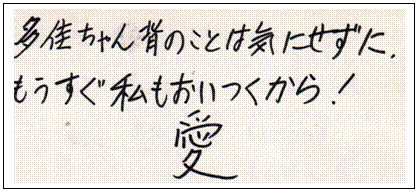 多佳ちゃん背のことは気にせずに.
もうすぐ私もおいつくから!
愛